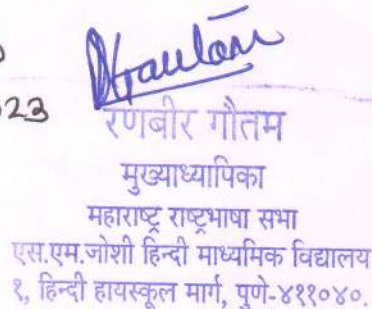 23
रणबीर गौतम
मुख्याध्यापिका
महाराष्ट्र राष्ट्रभाषा सभा
एस.एम.जोशी हिन्दी माध्यमिक विद्यालय
१, हिन्दी हायस्कूल मार्ग, पुणे-४११०४०.